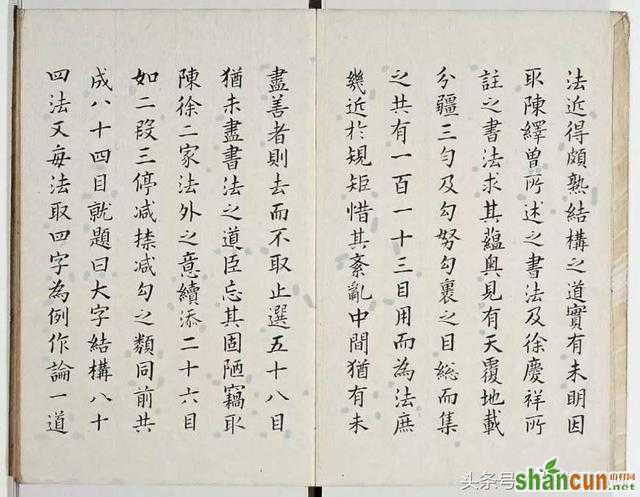 法近得頗熟結構之道實有未明因
取陳繹曽所述之書法及徐慶祥所
註之書法求其蘊奥見有天覆地載
分疆三勻及勾努勾裹之目總而集
之共有一百一十三目用而為法庶
幾近於規矩惜其紊亂中間猶有未
盡善者則去而不取止選五十八目
猶未盡書法之道臣忘其固陋竊取
陳徐二家法外之意續添二十六目
如二段三停减捺减勾之類同前共
成八十四目就題曰大字結構八十
四法又每法取四字為例作論一道
头条号
shancun
山村网
.net